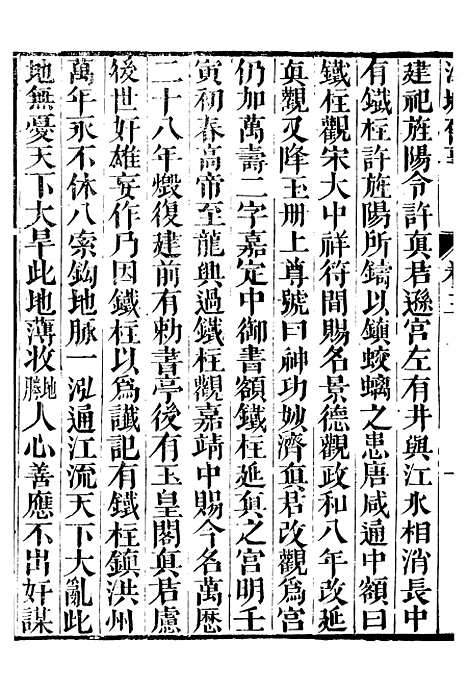 建祀旌陽令許真君遜宮左有井與江水相消長中
有鐵柱許旌陽所鑄以鎮蛟螭之患唐咸通中額曰
鐵柱觀宋大中祥符間賜名景德觀政和八年改延
眞觀又降玉册上尊號曰神功妙濟眞君改觀爲宮
仍加萬壽二字嘉定中御書額鐵柱延眞之宮明壬
寅初春高帝至龍興過鐵柱觀嘉靖中賜今名萬歷
二十八年燬復建前有勅書亭後有玉皇閣眞君慮
後世奸雄妄作乃因鐵柱以爲讖記有鐵柱鎮洪州
萬年永不休八索鈎地脉一泓通江流天下大亂此
地無憂天下大旱此地薄收地勝人心善應不出奸謀